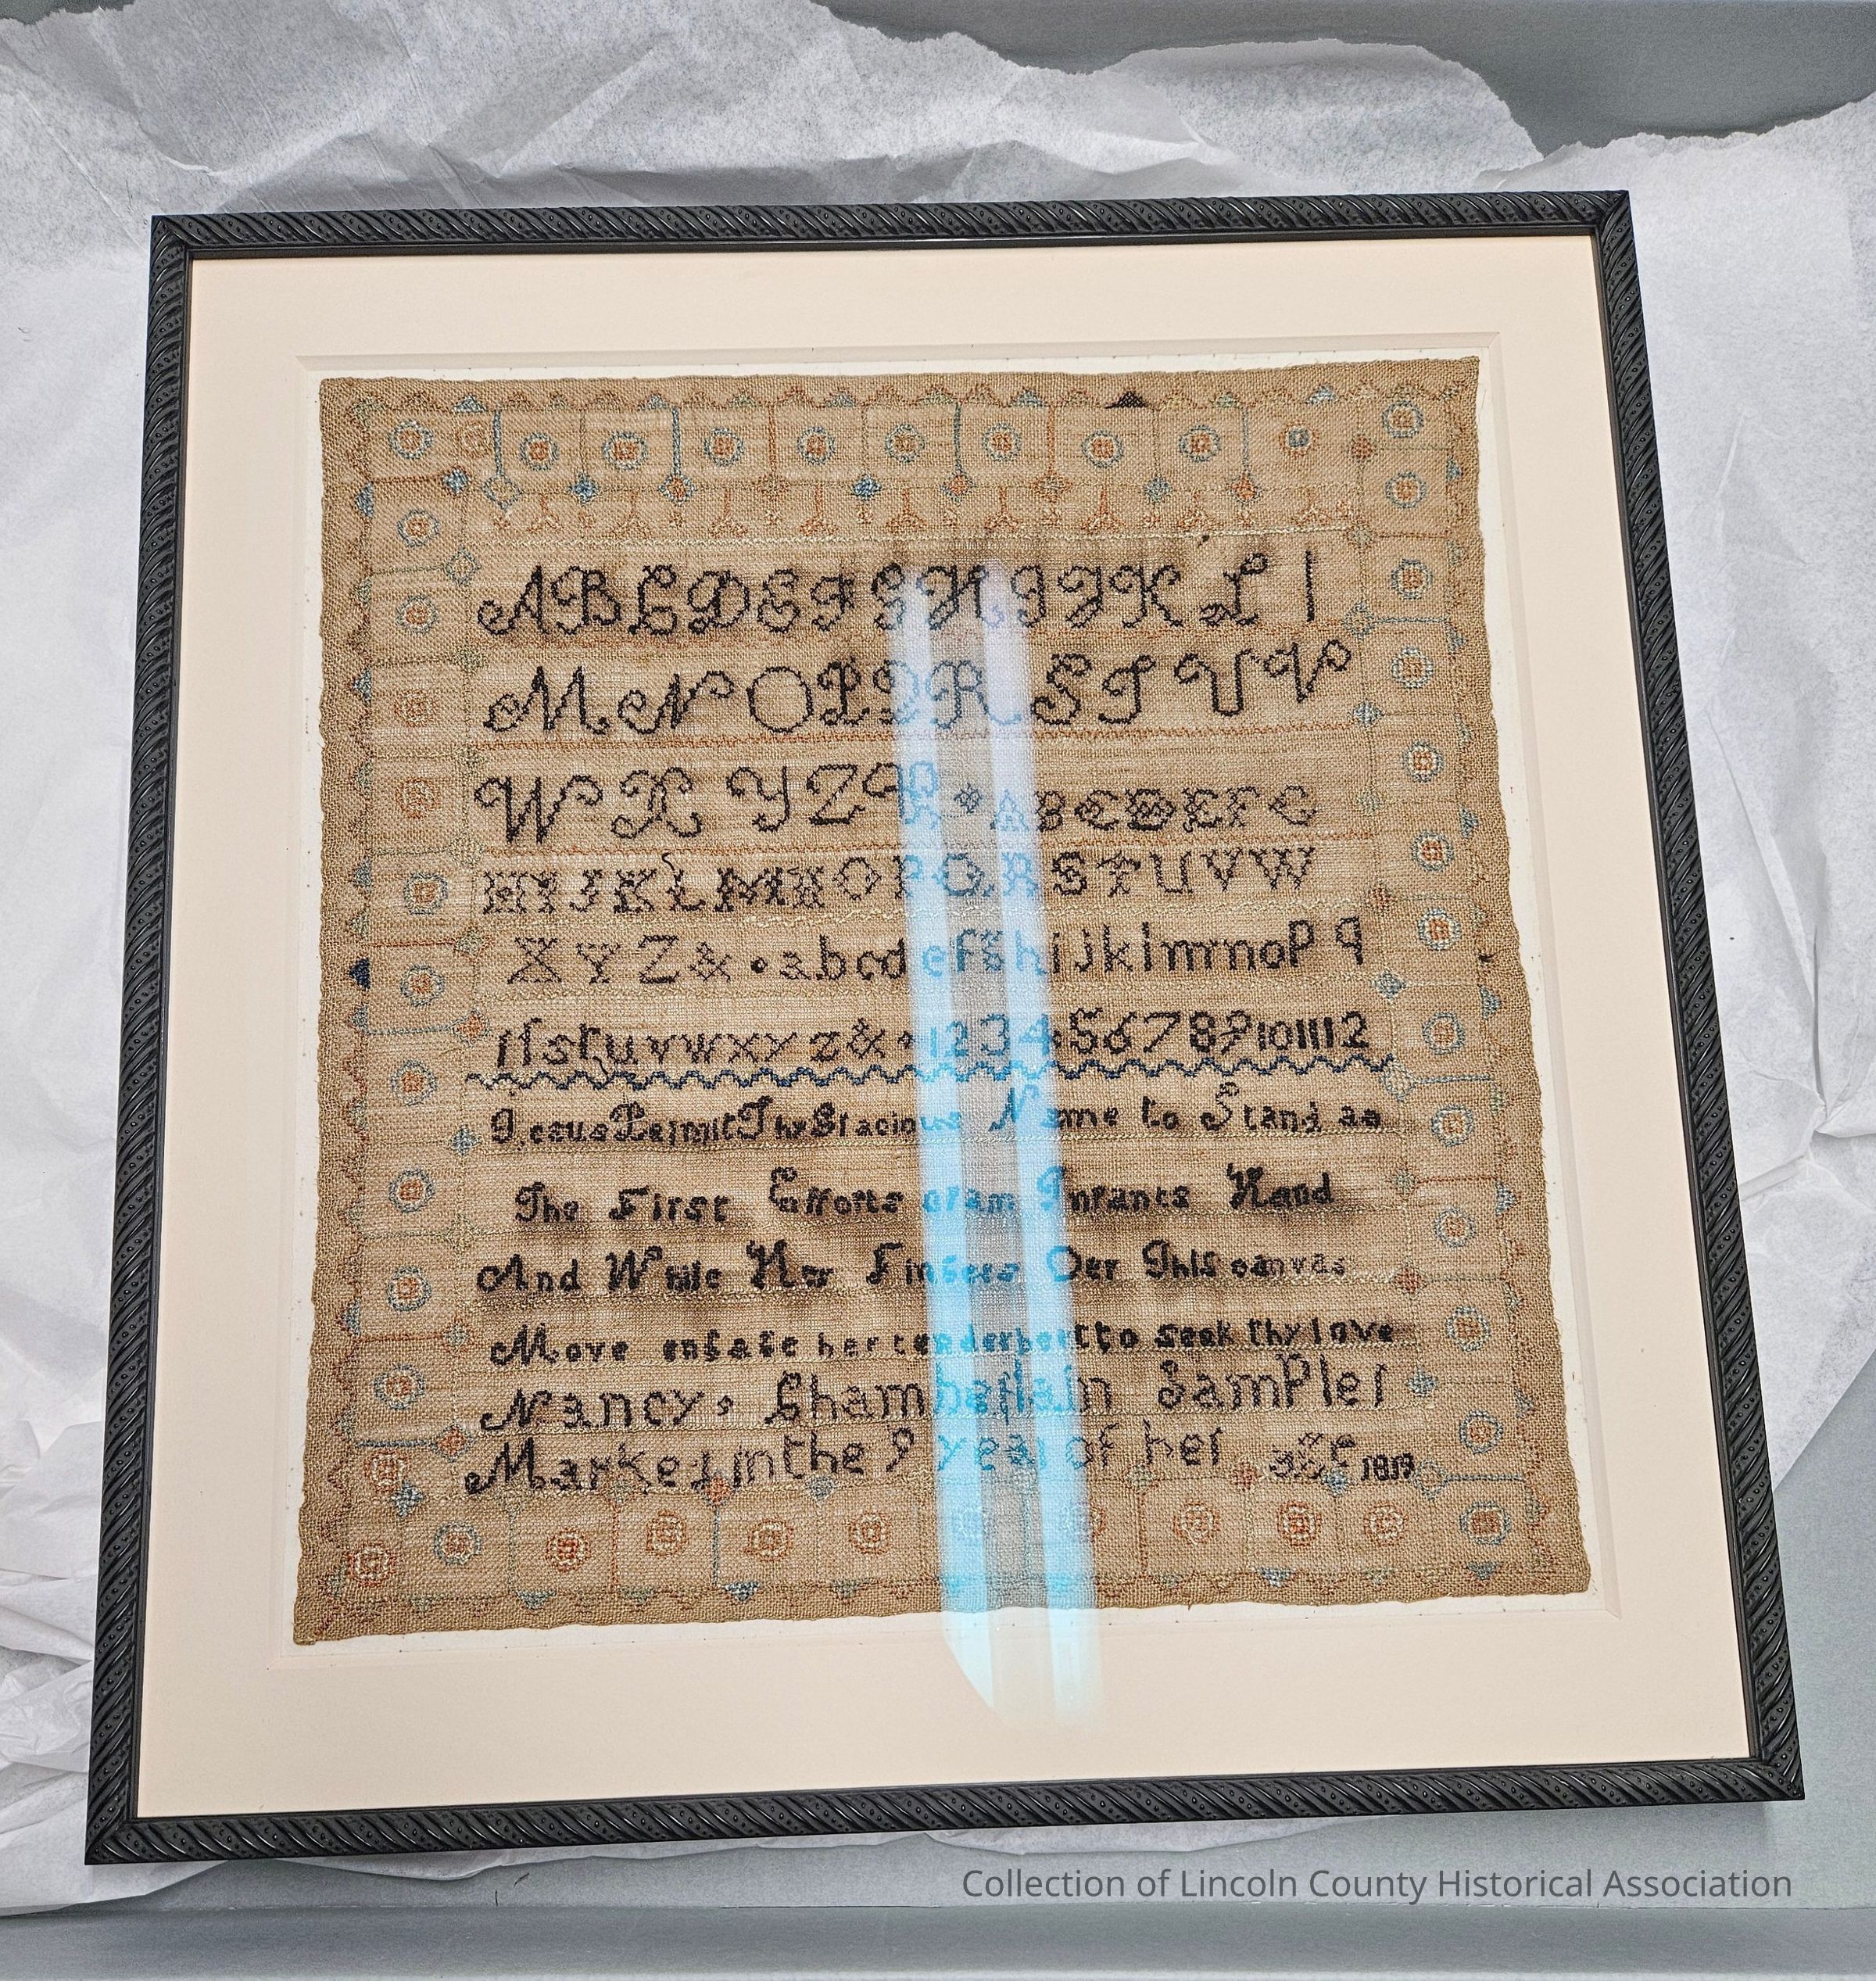 A B C D E F G H I J K L I
M N O P Q R S T U V
W X Y Z & A B C D E F G
H I J K L M N O P Q R S T U V W
X Y Z & a b c d e f g h i j k l m n o P q
r ſ s t u v w x y z & 1 2 3 4 5 6 7 8 9 10 11 12
Jesus Permit Thy Gracious Name to Stand as
The First Efforts of am Infants Hand
And While Her Fingers Oer This canvas
Move engage her tender hert to seek thy love
Nancy Chamberlain SamPler
Marked in the 9 year of her age 1819
Collection of Lincoln County Historical Association